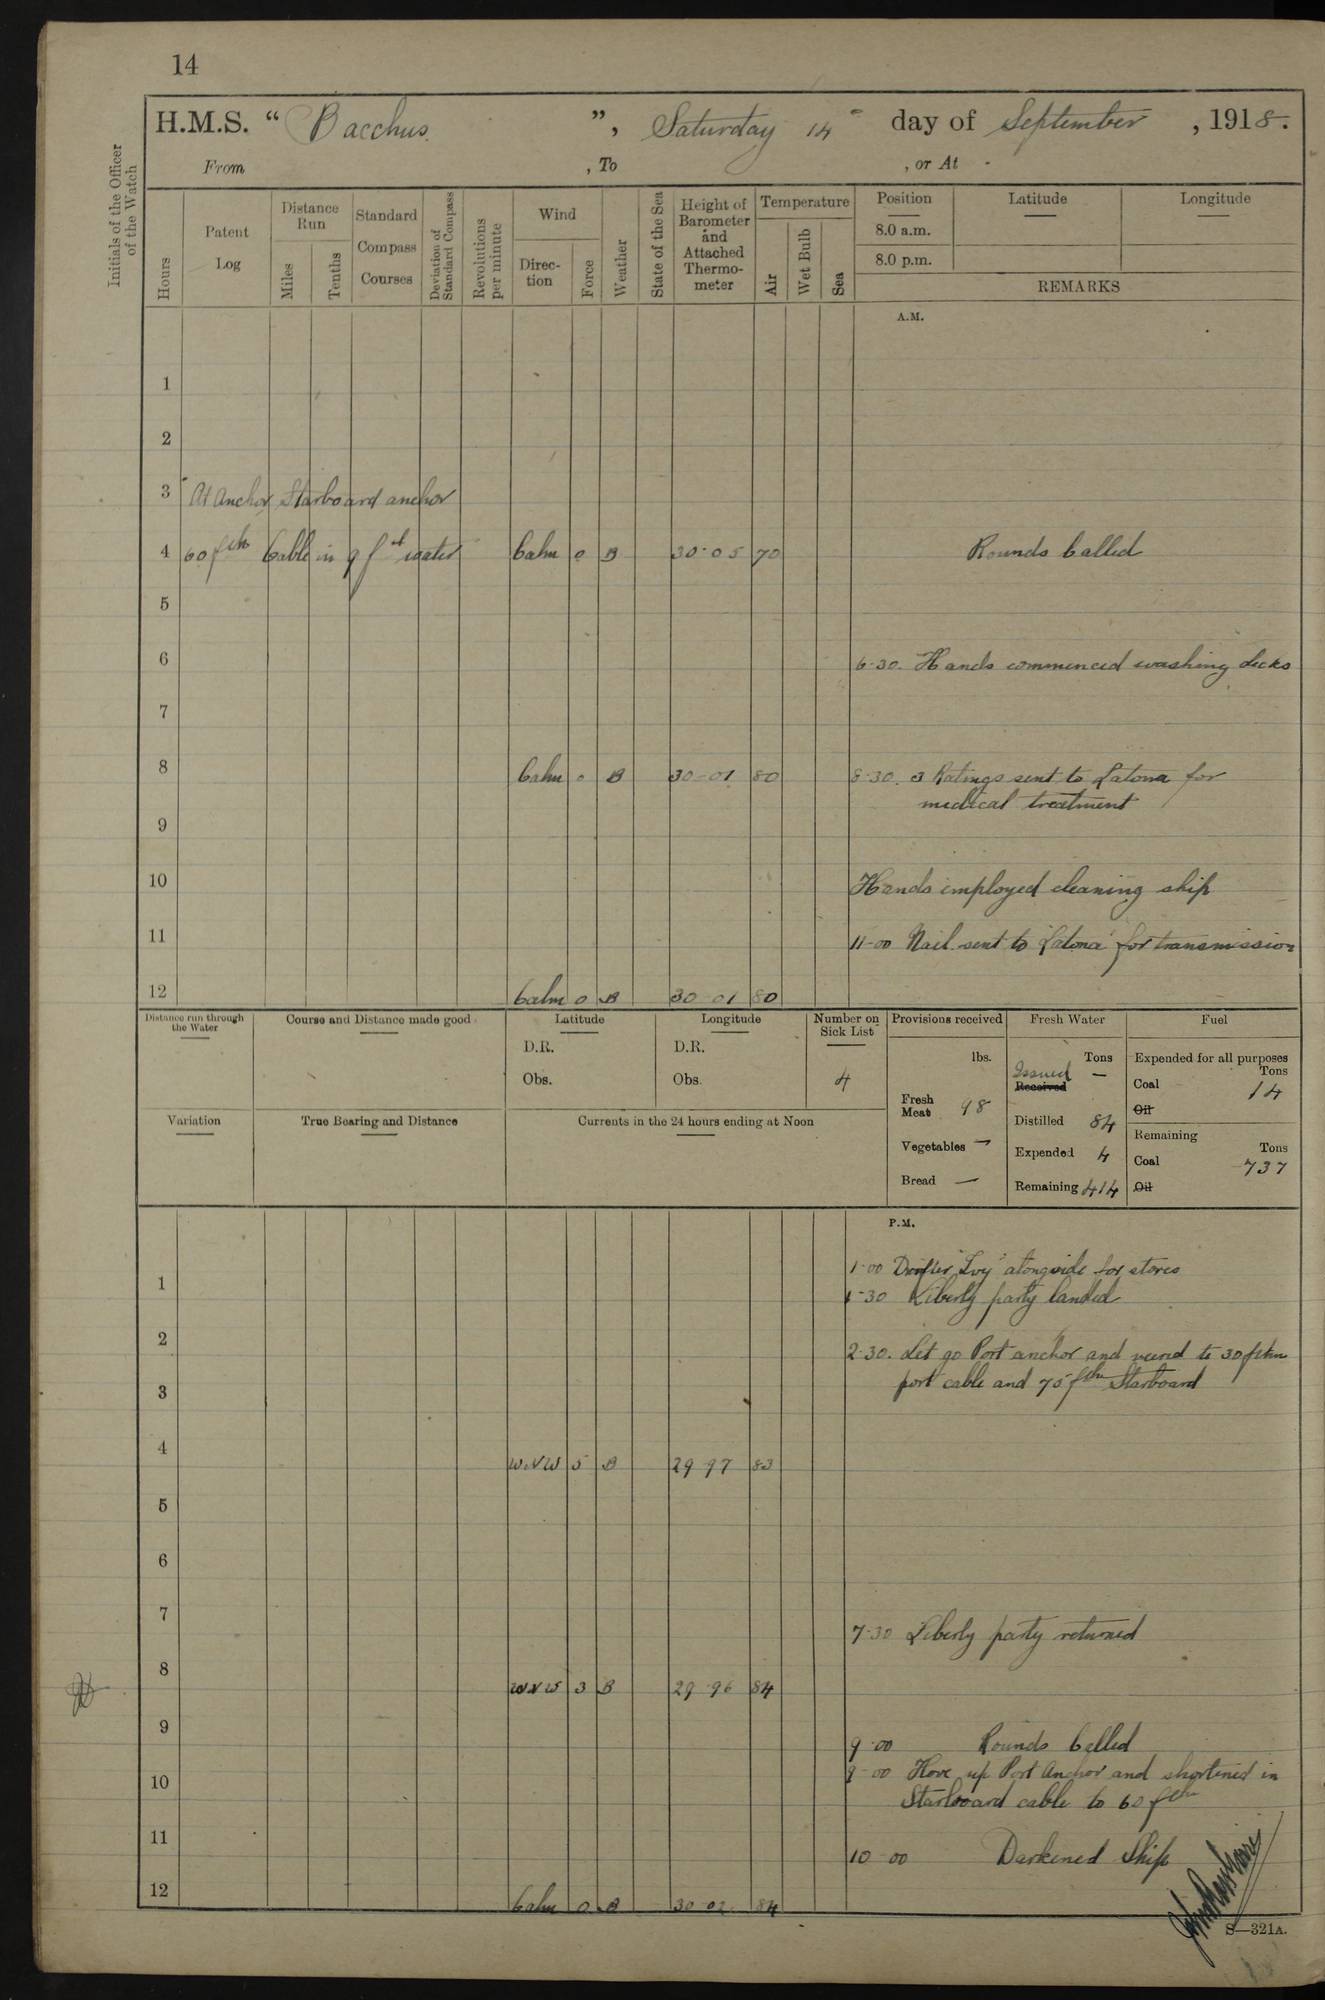 14
H.M.S. “ Bacchus ”, Saturday 14th day of September , 1918.
From , To , or At -
Initials of the Officer of the Watch
Hours
Patent Log
Distance Run
Miles
Tenths
Standard Compass Courses
Deviation of Standard Compass
Revolutions per minute
Wind
Direc-tion
Force
Weather
State of the Sea
Height of Barometer and Attached Thermo-meter
Temperature
Air
Wet Bulb
Sea
Position Latitude Longitude
8.0 a.m.
8.0 p.m.
REMARKS
A.M.
1
2
3 At Anchor Starboard anchor
4 60 fth Cable in 9 fth water Calm 0 B 30·05 70 Rounds Called
5
6 6·30. Hands commenced washing decks
7
8 Calm 0 B 30-01 80 8·30. 3 Ratings sent to Latona for
medical treatment
9
10 Hands employed cleaning ship
11 11-00 Mail sent to "Latona" for transmission
12 Calm 0 B 30-01 80
Distance run through the Water
Course and Distance made good
Latitude
D.R.
Obs.
Longitude
D.R.
Obs.
Number on Sick List
4
Provisions received
lbs.
Fresh Meat 98
Vegetables —
Bread —
Fresh Water
Tons
Issued —
Received
Distilled 84
Expended 4
Remaining 414
Fuel
Expended for all purposes
Tons
Coal 14
Oil
Remaining
Tons
Coal 737
Oil
Variation
True Bearing and Distance
Currents in the 24 hours ending at Noon
P.M.
1·00 Drifter "Ivy" alongside for stores
1
1-30 Liberty party landed
2 2·30. Let go Port anchor and veered to 30 fthm
port cable and 75 fthm Starboard
3
4 WNW 5 B 29 97 83
5
6
7 7·30 Liberty party returned
8 WNW 3 B 29·96 84
9 9·00 Rounds Called
9-00 Hove up Port Anchor and shortened in
10 Starboard cable to 60 fthm
11 10 00 Darkened Ship
12 Calm 0 B 30 02 84
S—321A.